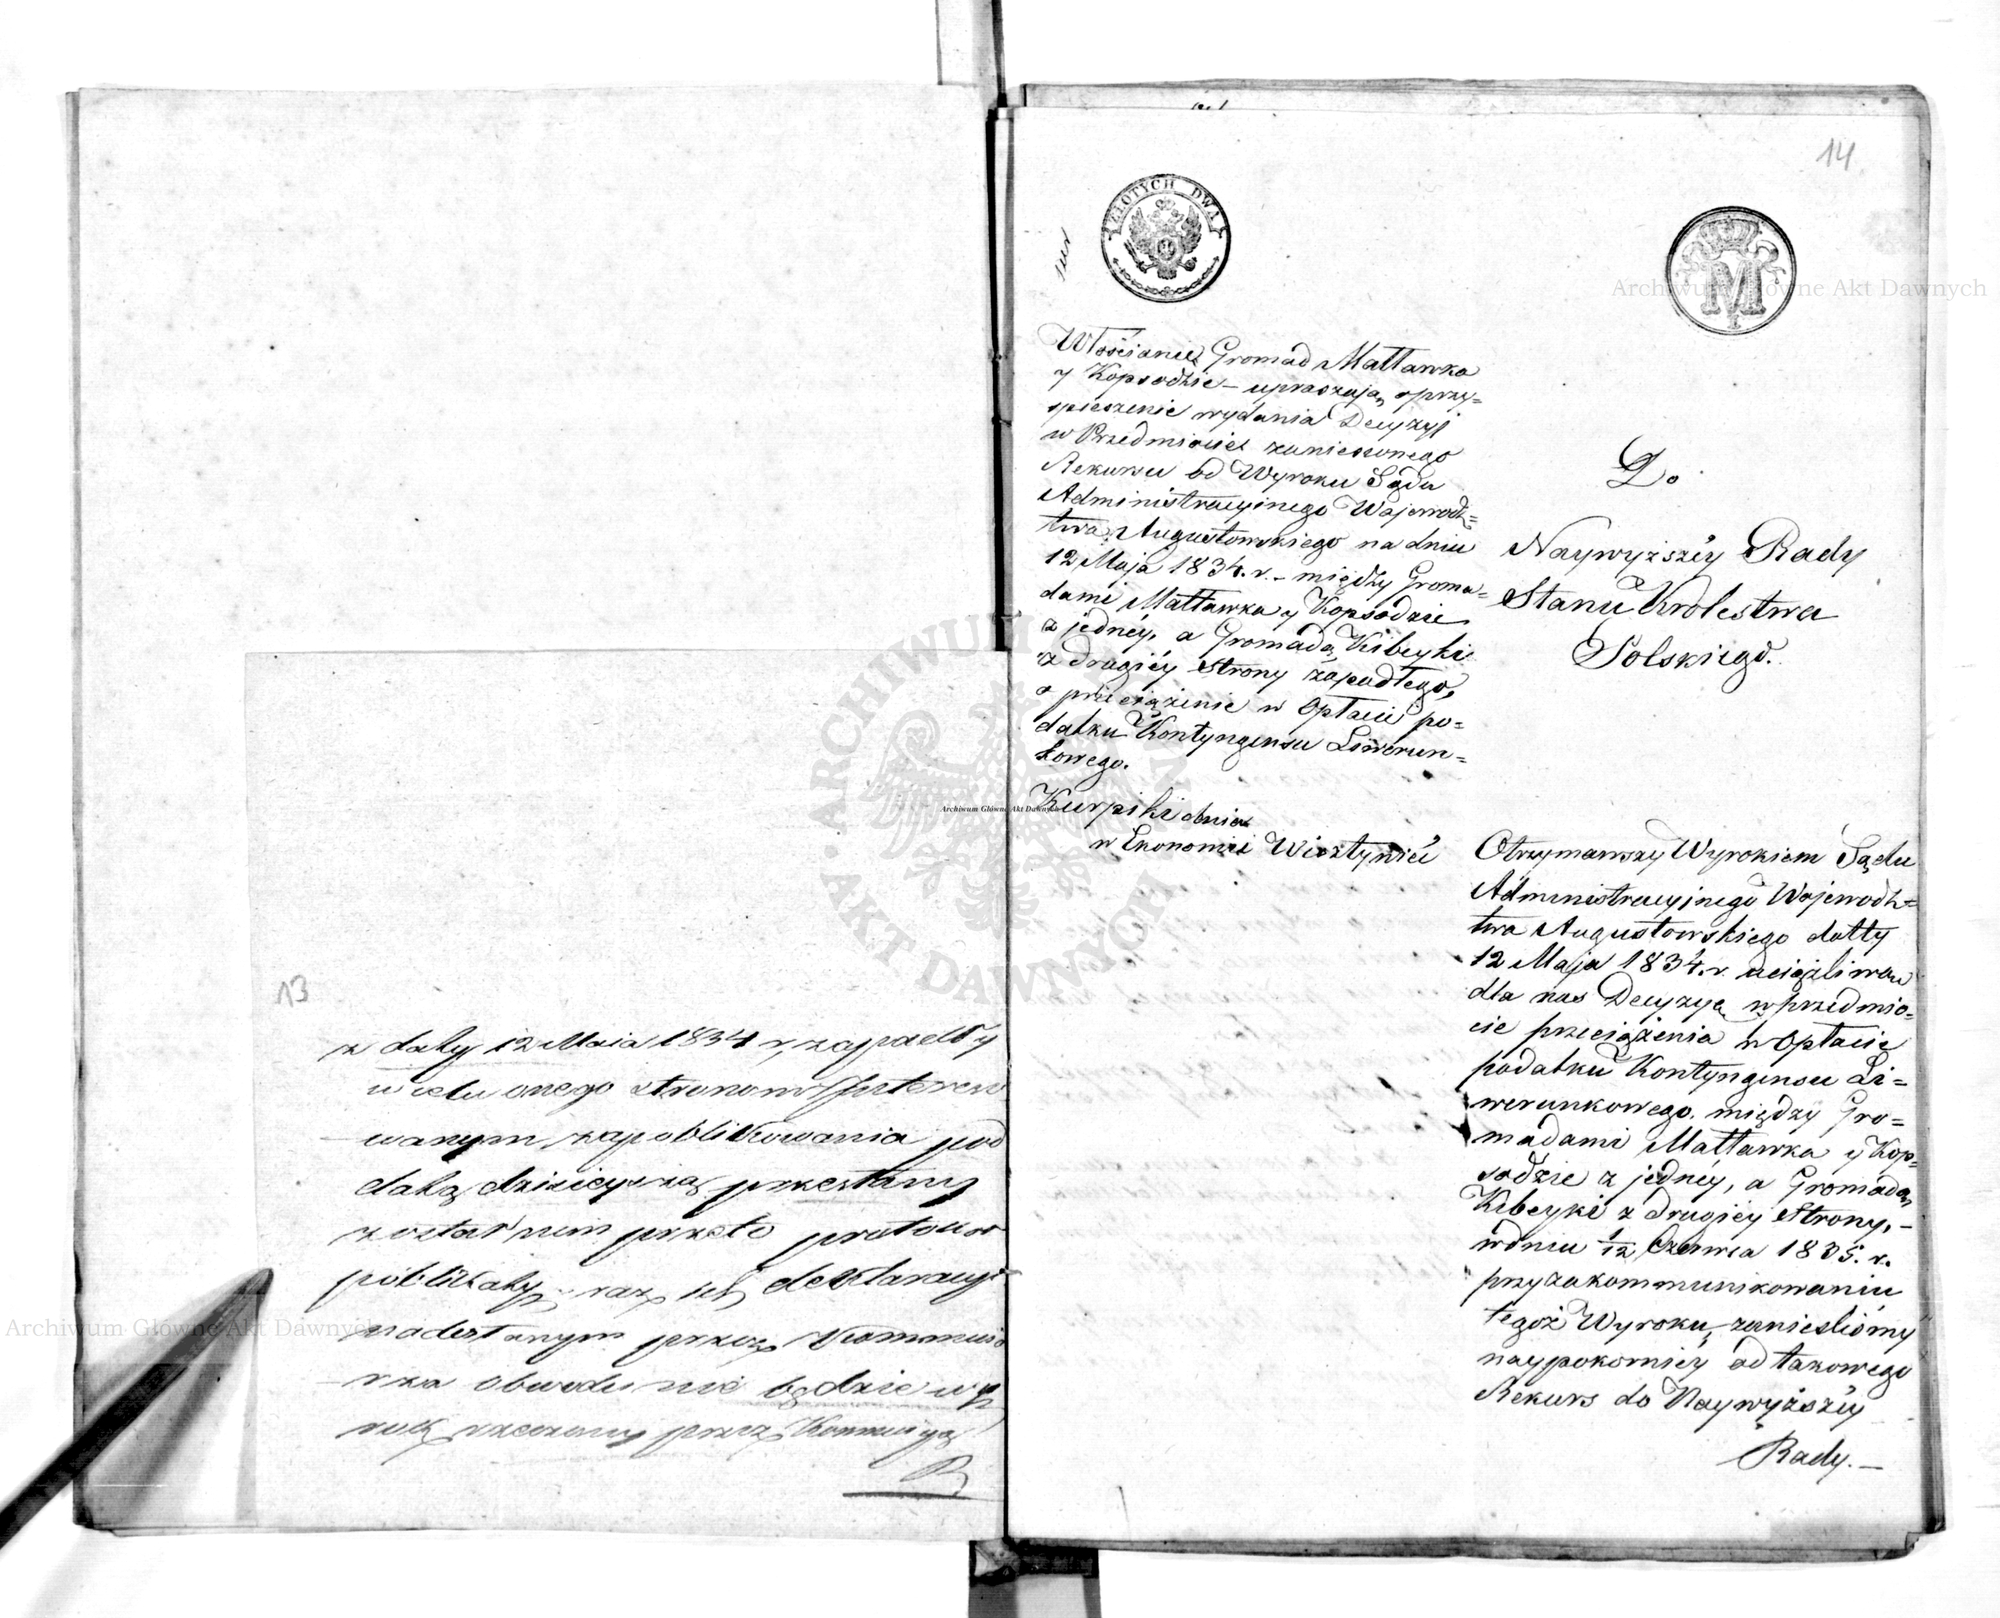 13
z daty 12 Maia 1834 r. zapadły
w celu onego stronom Intereso
wanym zapoblikowania pod
datą dzisieyszą przesłany
został nim przeto protokoł
poblikaty raz ich deklaracyi
nadesłanym przez Kommisa
rza obwodu nie będzie wy
rok rzeczony przez Kommisyą
14
ZŁOTYCH DWA
M
I
Włościanie Gromad Mattawka
y Kopsodzie – upraszają o przy=
spieszenie wydania Decyzyi
w Przedmiocie zaniesionego
Rekursu od Wyroku Sądu
Administracyinego Wojewodz=
twa Augustowskiego na dniu
12 Maja 1834. r. – między Groma=
dami Mattawka y Kopsodzie
z jedney, a Gromadą Kibeyki
z drugiéy strony zapadłego,
o przeciążenie w Opłacie po=
datku Kontyngensu Liwerun=
kowego.
Kurpiki dnia
w Ekonomii Wisztyniec
Do
Naywyższéy Rady
Stanu Krolestwa
Polskiego.
Otrzymawszy Wyrokiem Sądu
Administracyjnego Wojewodz=
twa Augustowskiego datty
12 Maja 1834. r. uciążliwą
dla nas Decyzyą w przedmio=
cie przeciążenia w Opłacie
podatku Kontyngensu Li=
werunkowego. między Gro=
madami Mattawka y Kop=
sodzie z jednéy, a Gromadą
Kibeyki z drugiéy strony, –
w dniu 1/12 Czerwca 1835. r.
przy zakommunikowaniu
tegoż Wyroku, zanieśliśmy
naypokorniéy od takowego
Rekurs do Naywyższéy
Rady. –